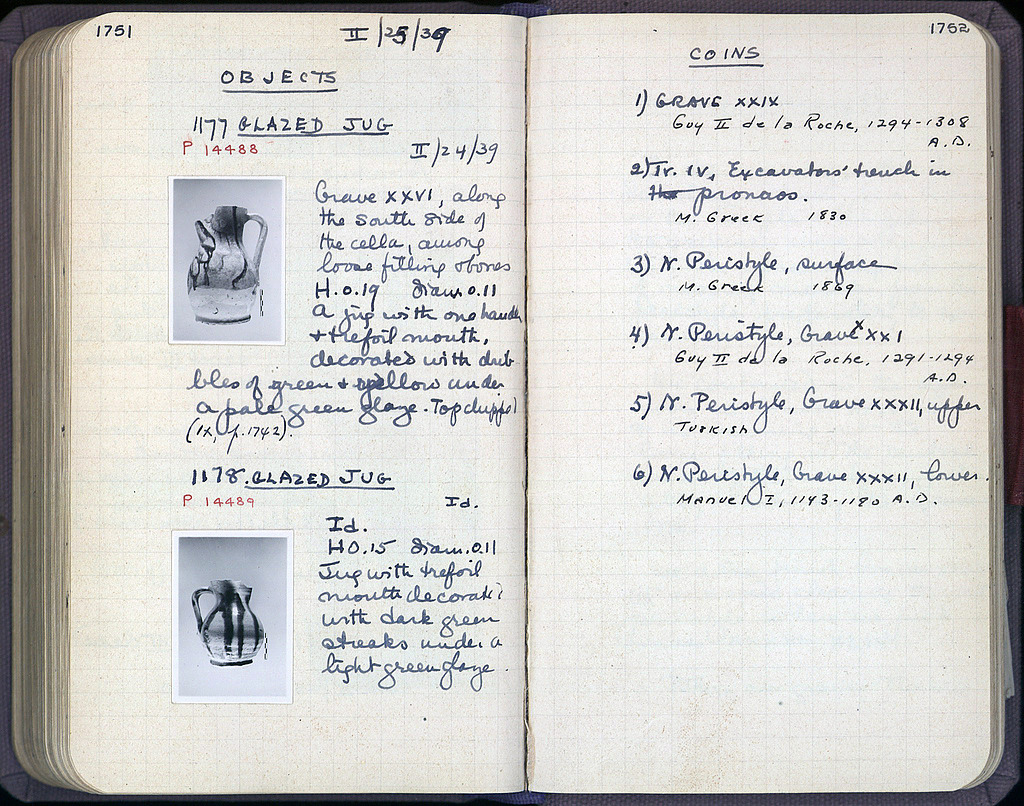 1751
II/25/39
OBJECTS
1177 GLAZED JUG
P 14488
II/24/39
Grave XXVI, along
the south side of
the cella, among
loose filling & bones
H.0.19 Diam.0.11
A jug with one handle
& trefoil mouth,
decorated with dub
bles of green & yellow under
a pale green glaze. Top chipped
(IX, p.1742).
1178. GLAZED JUG
P 14489
Id.
Id.
H 0.15 Diam.0.11
Jug with trefoil
mouth decorated
with dark green
streaks under a
light green glaze.
1752
COINS
1) GRAVE XXIX
Guy II de la Roche, 1294-1308
A.D.
2) Tr. IV, Excavators' trench in
the pronaos.
M. Greek 1830
3) N. Peristyle, surface
M. Greek 1869
4) N. Peristyle, Grave XXI
Guy II de la Roche, 1291-1294
A.D.
5) N. Peristyle, Grave XXXII, upper
Turkish
6) N. Peristyle, Grave XXXII, lower.
Manuel I, 1143-1180 A.D.